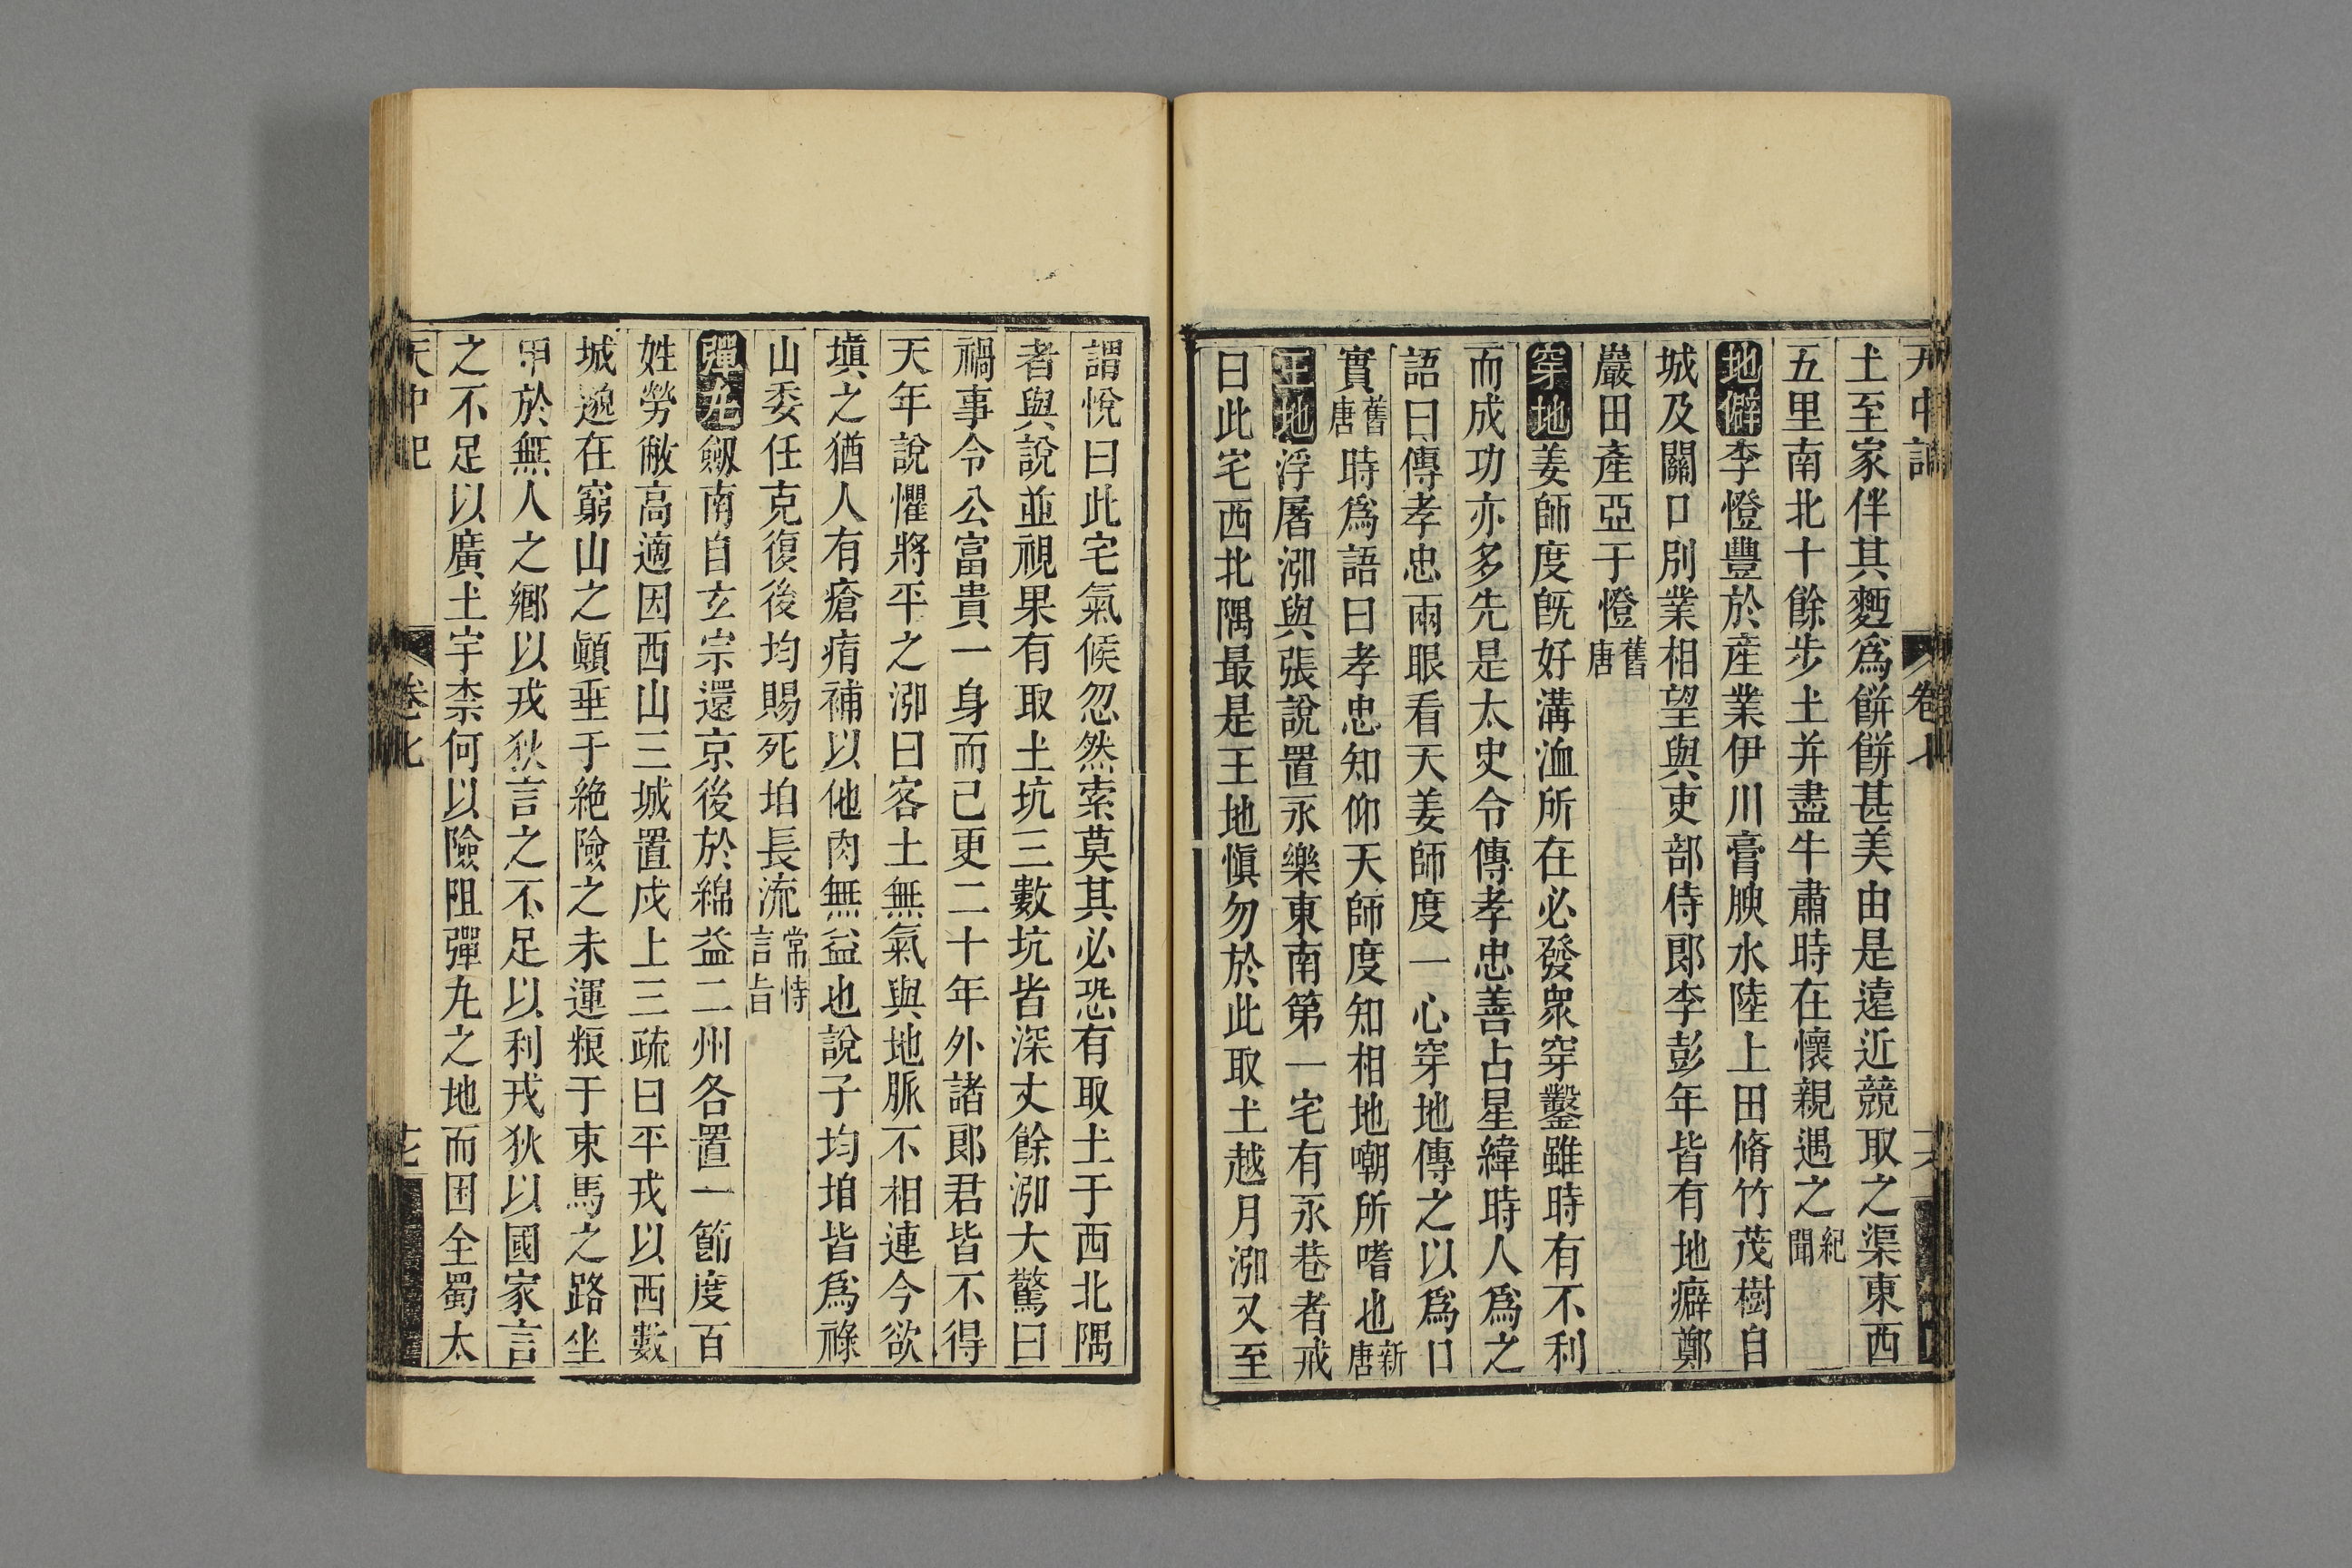 天中記 卷七 十六
土至家伴其麪爲餅餅甚美由是遠近競取之渠東西
五里南北十餘步土并盡牛肅時在懷親遇之紀聞
地癖李憕豐於産業伊川膏腴水陸上田脩竹茂樹自
城及關口別業相望與吏部侍郎李彭年皆有地癖鄭
巖田産亞于憕舊唐
穿地姜師度旣好溝洫所在必發衆穿鑿雖時有不利
而成功亦多先是太史令傳孝忠善占星緯時人爲之
語曰傳孝忠兩眼看天姜師度一心穿地傳之以爲口
實舊唐時爲語曰孝忠知仰天師度知相地嘲所嗜也新唐
王地浮屠泓與張說置永樂東南第一宅有永巷者戒
曰此宅西北隅最是王地愼勿於此取土越月泓又至
謂悅曰此宅氣候忽然索莫其必恐有取土于西北隅
者與說並視果有取土坑三數坑皆深丈餘泓大驚曰
禍事令公富貴一身而已更二十年外諸郎君皆不得
天年說懼將平之泓曰客土無氣與地脈不相連今欲
塡之猶人有瘡痏補以他肉無益也說子均垍皆爲祿
山委任克復後均賜死垍長流常侍言旨
彈丸劔南自玄宗還京後於綿益二州各置一節度百
姓勞敝高適因西山三城置戍上三疏曰平戎以西數
城邈在窮山之顚垂于絶險之末運糧于束馬之路坐
甲於無人之鄉以戎狄言之不足以利戎狄以國家言
之不足以廣土宇柰何以險阻彈丸之地而困全蜀太
天中記 卷七 十七